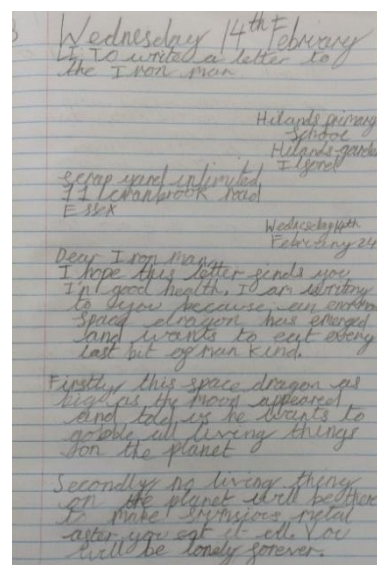 Wednesday 14th February
LI To write a letter to
the Iron man
Hilands primary
School
Hilands garden
Ilford
scrap yard unlimited
71 cranbrook road
Essex
Wednesday 14th
February 24
Dear Iron man,
I hope this letter finds you
in good health. I am writing
to you because an enormous
space dragon has emerged
and wants to eat every
last bit of man kind.
Firstly this space dragon as
big as the moon appeared
and told us he wants to
gobble all living things
on the planet
Secondly no living thing
on the planet will be there
to make metal
after you eat it all. You
will be lonely forever.